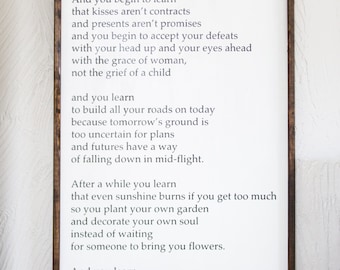 And you begin to learn
that kisses aren't contracts
and presents aren't promises
and you begin to accept your defeats
with your head up and your eyes ahead
with the grace of woman,
not the grief of a child
and you learn
to build all your roads on today
because tomorrow's ground is
too uncertain for plans
and futures have a way
of falling down in mid-flight.
After a while you learn
that even sunshine burns if you get too much
so you plant your own garden
and decorate your own soul
instead of waiting
for someone to bring you flowers.